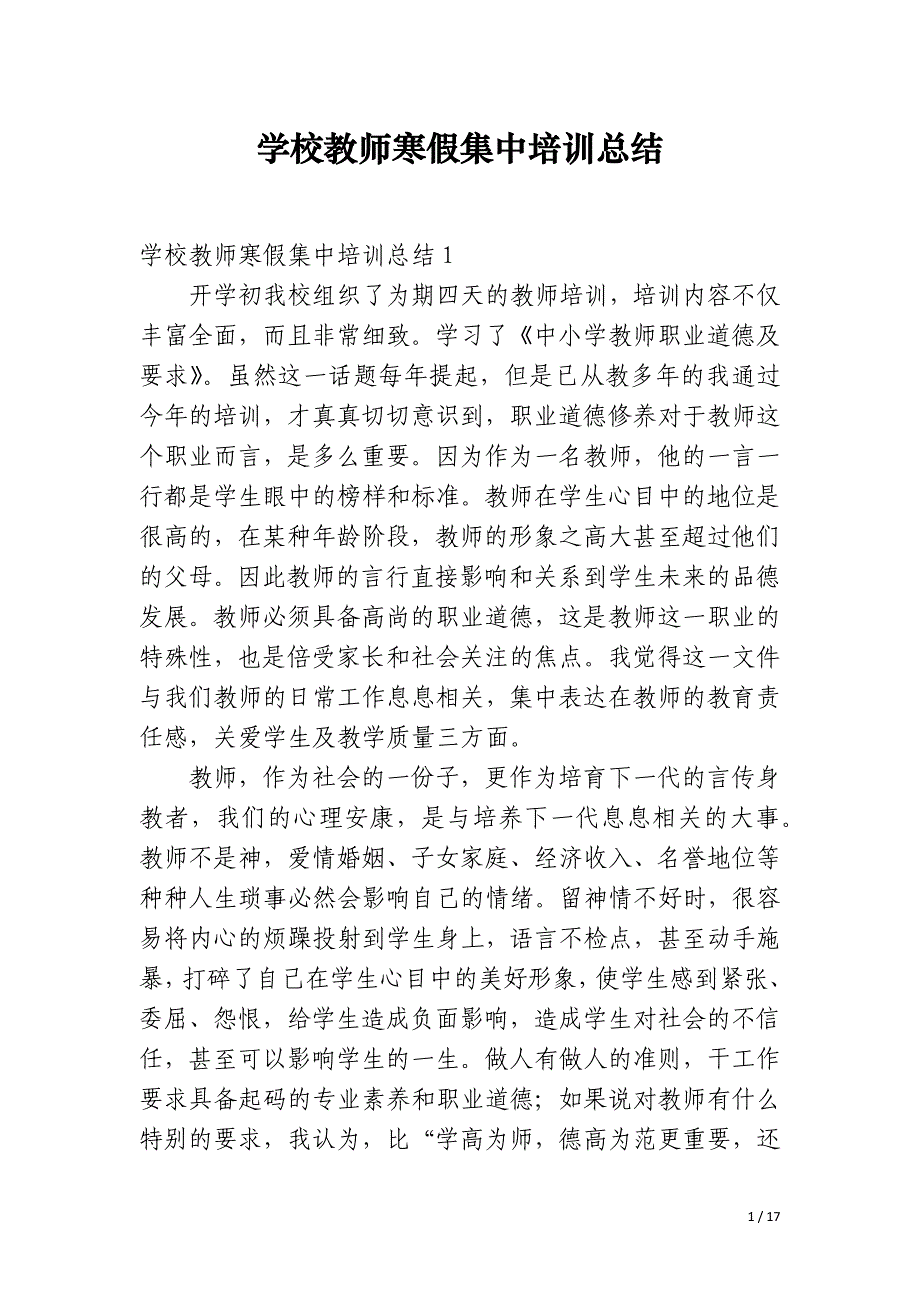 学校教师寒假集中培训总结
学校教师寒假集中培训总结 1
开学初我校组织了为期四天的教师培训，培训内容不仅
丰富全面，而且非常细致。学习了《中小学教师职业道德及
要求》。虽然这一话题每年提起，但是已从教多年的我通过
今年的培训，才真真切切意识到，职业道德修养对于教师这
个职业而言，是多么重要。因为作为一名教师，他的一言一
行都是学生眼中的榜样和标准。教师在学生心目中的地位是
很高的，在某种年龄阶段，教师的形象之高大甚至超过他们
的父母。因此教师的言行直接影响和关系到学生未来的品德
发展。教师必须具备高尚的职业道德，这是教师这一职业的
特殊性，也是倍受家长和社会关注的焦点。我觉得这一文件
与我们教师的日常工作息息相关，集中表达在教师的教育责
任感，关爱学生及教学质量三方面。
教师，作为社会的一份子，更作为培育下一代的言传身
教者，我们的心理安康，是与培养下一代息息相关的大事。
教师不是神，爱情婚姻、子女家庭、经济收入、名誉地位等
种种人生琐事必然会影响自己的情绪。留神情不好时，很容
易将内心的烦躁投射到学生身上，语言不检点，甚至动手施
暴，打碎了自己在学生心目中的美好形象，使学生感到紧张、
委屈、怨恨，给学生造成负面影响，造成学生对社会的不信
任，甚至可以影响学生的一生。做人有做人的准则，干工作
要求具备起码的专业素养和职业道德；如果说对教师有什么
特别的要求，我认为，比“学高为师，德高为范更重要，还
1 / 17